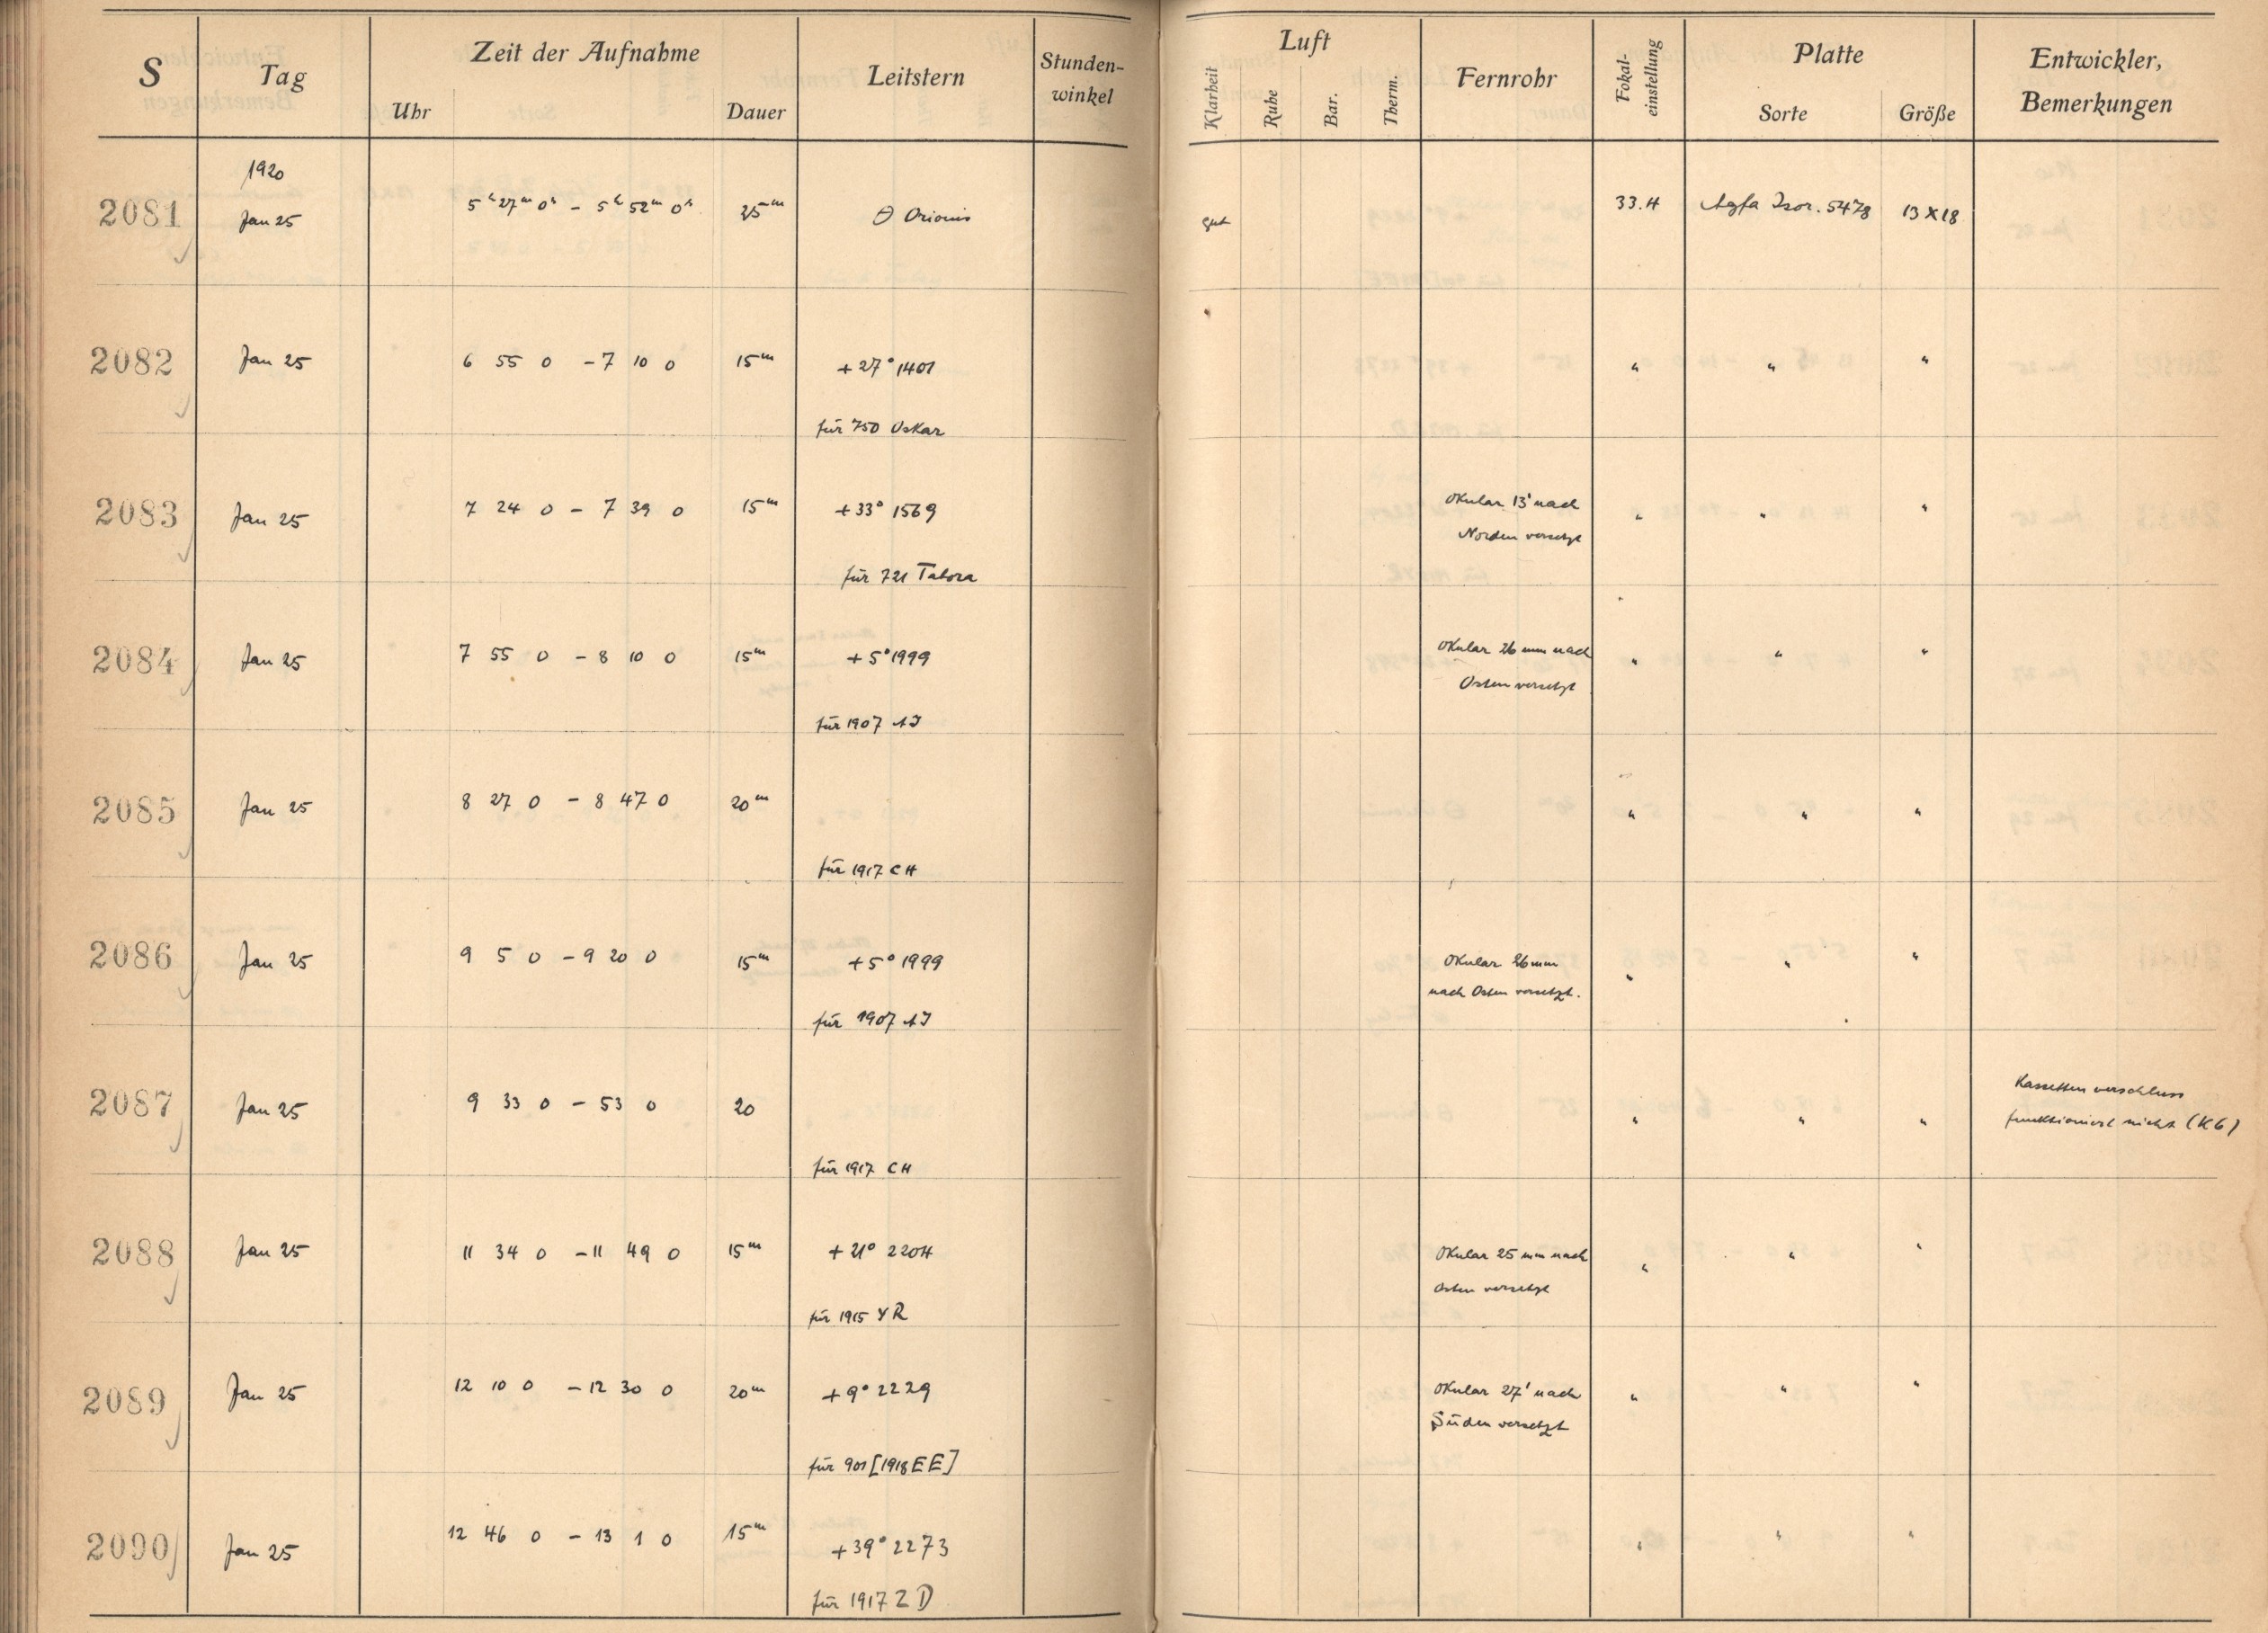 S Tag Zeit der Aufnahme Leitstern Stunden-
winkel Luft Fernrohr Fokal-
einstellung Platte Entwickler,
Bemerkungen
Uhr Dauer Klarheit Ruhe Bar. Therm. Sorte Größe
1920
2081 Jan 25 5h 27m 0s - 5h 52m 0s 25m θ Orionis gut 33.4 Agfa Isor. 5478 13 X 18
2082 Jan 25 6 55 0 - 7 10 0 15m +27° 1401 " " "
für 750 Oskar
2083 Jan 25 7 24 0 - 7 39 0 15m +33° 1569 Okular 13' nach " " "
Norden versetzt
für 721 Tabora
2084 Jan 25 7 55 0 - 8 10 0 15m +5° 1999 Okular 26 mm nach " " "
Osten versetzt
für 1907 AJ
2085 Jan 25 8 27 0 - 8 47 0 20m " " "
für 1917 CH
2086 Jan 25 9 5 0 - 9 20 0 15m +5° 1999 Okular 26 mm " " "
nach Osten versetzt.
für 1907 AJ
Kassetten verschluss
2087 Jan 25 9 33 0 - 53 0 20 " " " funktioniert nicht (K6)
für 1917 CH
2088 Jan 25 11 34 0 - 11 49 0 15m +21° 2204 Okular 25 mm nach " " "
Osten versetzt
für 1915 YR
2089 Jan 25 12 10 0 - 12 30 0 20m +9° 2229 Okular 27' nach " " "
Süden versetzt
für 901 [1918 EE]
2090 Jan 25 12 46 0 - 13 1 0 15m +39° 2273 " " "
für 1917 ZD